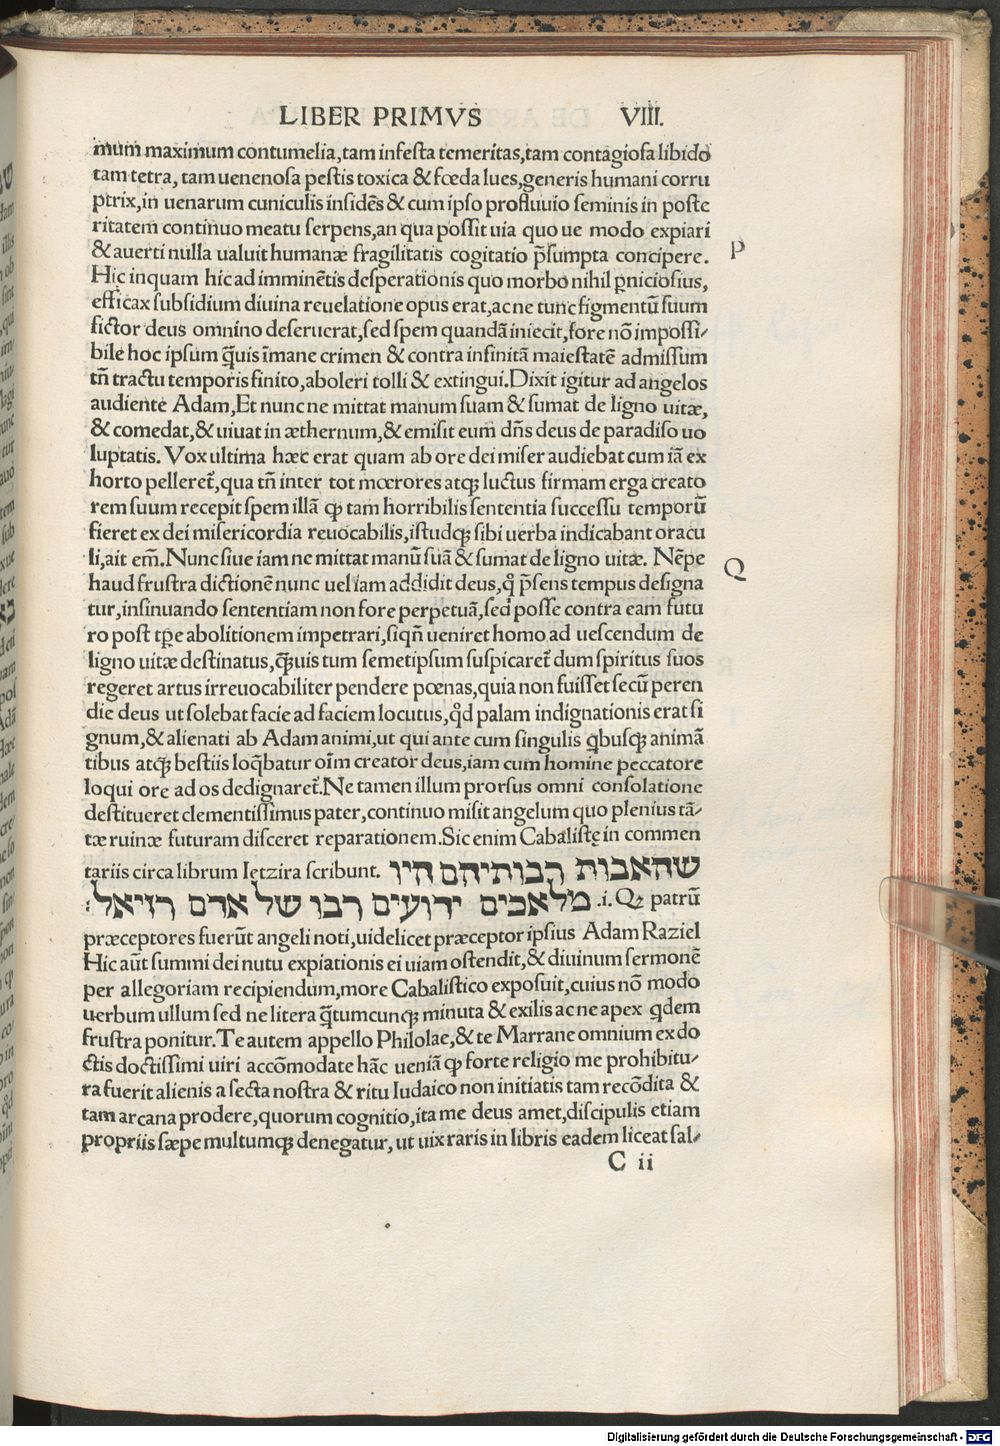 LIBER PRIMVS VIII.
mum maximum contumelia,tam infesta temeritas,tam contagiosa libido
tam tetra, tam uenenosa pestis toxica & fœda lues,generis humani corru
ptrix,in uenarum cuniculis insidẽs & cum ipso profluuio seminis in poste
ritatem continuo meatu serpens,an qua possit uia quo ue modo expiari
& auerti nulla ualuit humanæ fragilitatis cogitatio p̃sumpta concipere.
P
Hic inquam hic ad imminẽtis desperationis quo morbo nihil ꝑniciosius,
efficax subsidium diuina reuelatione opus erat,ac ne tunc figmentũ suum
fictor deus omnino deseruerat,sed spem quandã iniecit,fore nõ impossi-
bile hoc ipsum q̃uis ĩmane crimen & contra infinitã maiestatẽ admissum
tñ tractu temporis finito,aboleri tolli & extingui.Dixit igitur ad angelos
audiente Adam,Et nunc ne mittat manum suam & sumat de ligno uitæ,
& comedat,& uiuat in æthernum,& emisit eum dñs deus de paradiso uo
luptatis. Vox ultima hæc erat quam ab ore dei miser audiebat cum iã ex
horto pelleret̃,qua tñ inter tot mœrores atq; luctus firmam erga creato
rem suum recepit spem illã ꝙ tam horribilis sententia successu temporũ
fieret ex dei misericordia reuocabilis,istudq; sibi uerba indicabant oracu
li,ait em̃.Nunc siue iam ne mittat manũ suã & sumat de ligno uitæ. Nẽpe
Q
haud frustra dictionẽ nunc uel iam addidit deus,q̊ p̃sens tempus designa
tur,insinuando sententiam non fore perpetuã,sed posse contra eam futu
ro post tꝑe abolitionem impetrari,siqñ ueniret homo ad uescendum de
ligno uitæ destinatus,q̃uis tum semetipsum suspicaret̃ dum spiritus suos
regeret artus irreuocabiliter pendere pœnas,quia non fuisset secũ peren
die deus ut solebat facie ad faciem locutus,qđ palam indignationis erat si
gnum,& alienati ab Adam animi,ut qui ante cum singulis qbusq; animã
tibus atq; bestiis loq̃batur oĩm creator deus,iam cum homine peccatore
loqui ore ad os dedignaret̃.Ne tamen illum prorsus omni consolatione
destitueret clementissimus pater,continuo misit angelum quo plenius tã-
tæ ruinæ futuram disceret reparationem.Sic enim Cabalistę in commen
tariis circa librum Ietzira scribunt. שהאבות רבותיהם היו
מלאכים ידועים רבו של אדם רזיאל: .i. Qꝫ patrũ
præceptores fuerũt angeli noti,uidelicet præceptor ipsius Adam Raziel
Hic aũt summi dei nutu expiationis ei uiam ostendit,& diuinum sermonẽ
per allegoriam recipiendum,more Cabalistico exposuit,cuius nõ modo
uerbum ullum sed ne litera q̃tumcunq; minuta & exilis ac ne apex qdem
frustra ponitur.Te autem appello Philolae,& te Marrane omnium ex do
ctis doctissimi uiri accõmodate hãc ueniã ꝙ forte religio me prohibitu-
ra fuerit alienis a secta nostra & ritu Iudaico non initiatis tam recõdita &
tam arcana prodere,quorum cognitio,ita me deus amet,discipulis etiam
propriis sæpe multumq; denegatur,ut uix raris in libris eadem liceat sal-
C ii
Digitalisierung gefördert durch die Deutsche Forschungsgemeinschaft - DFG